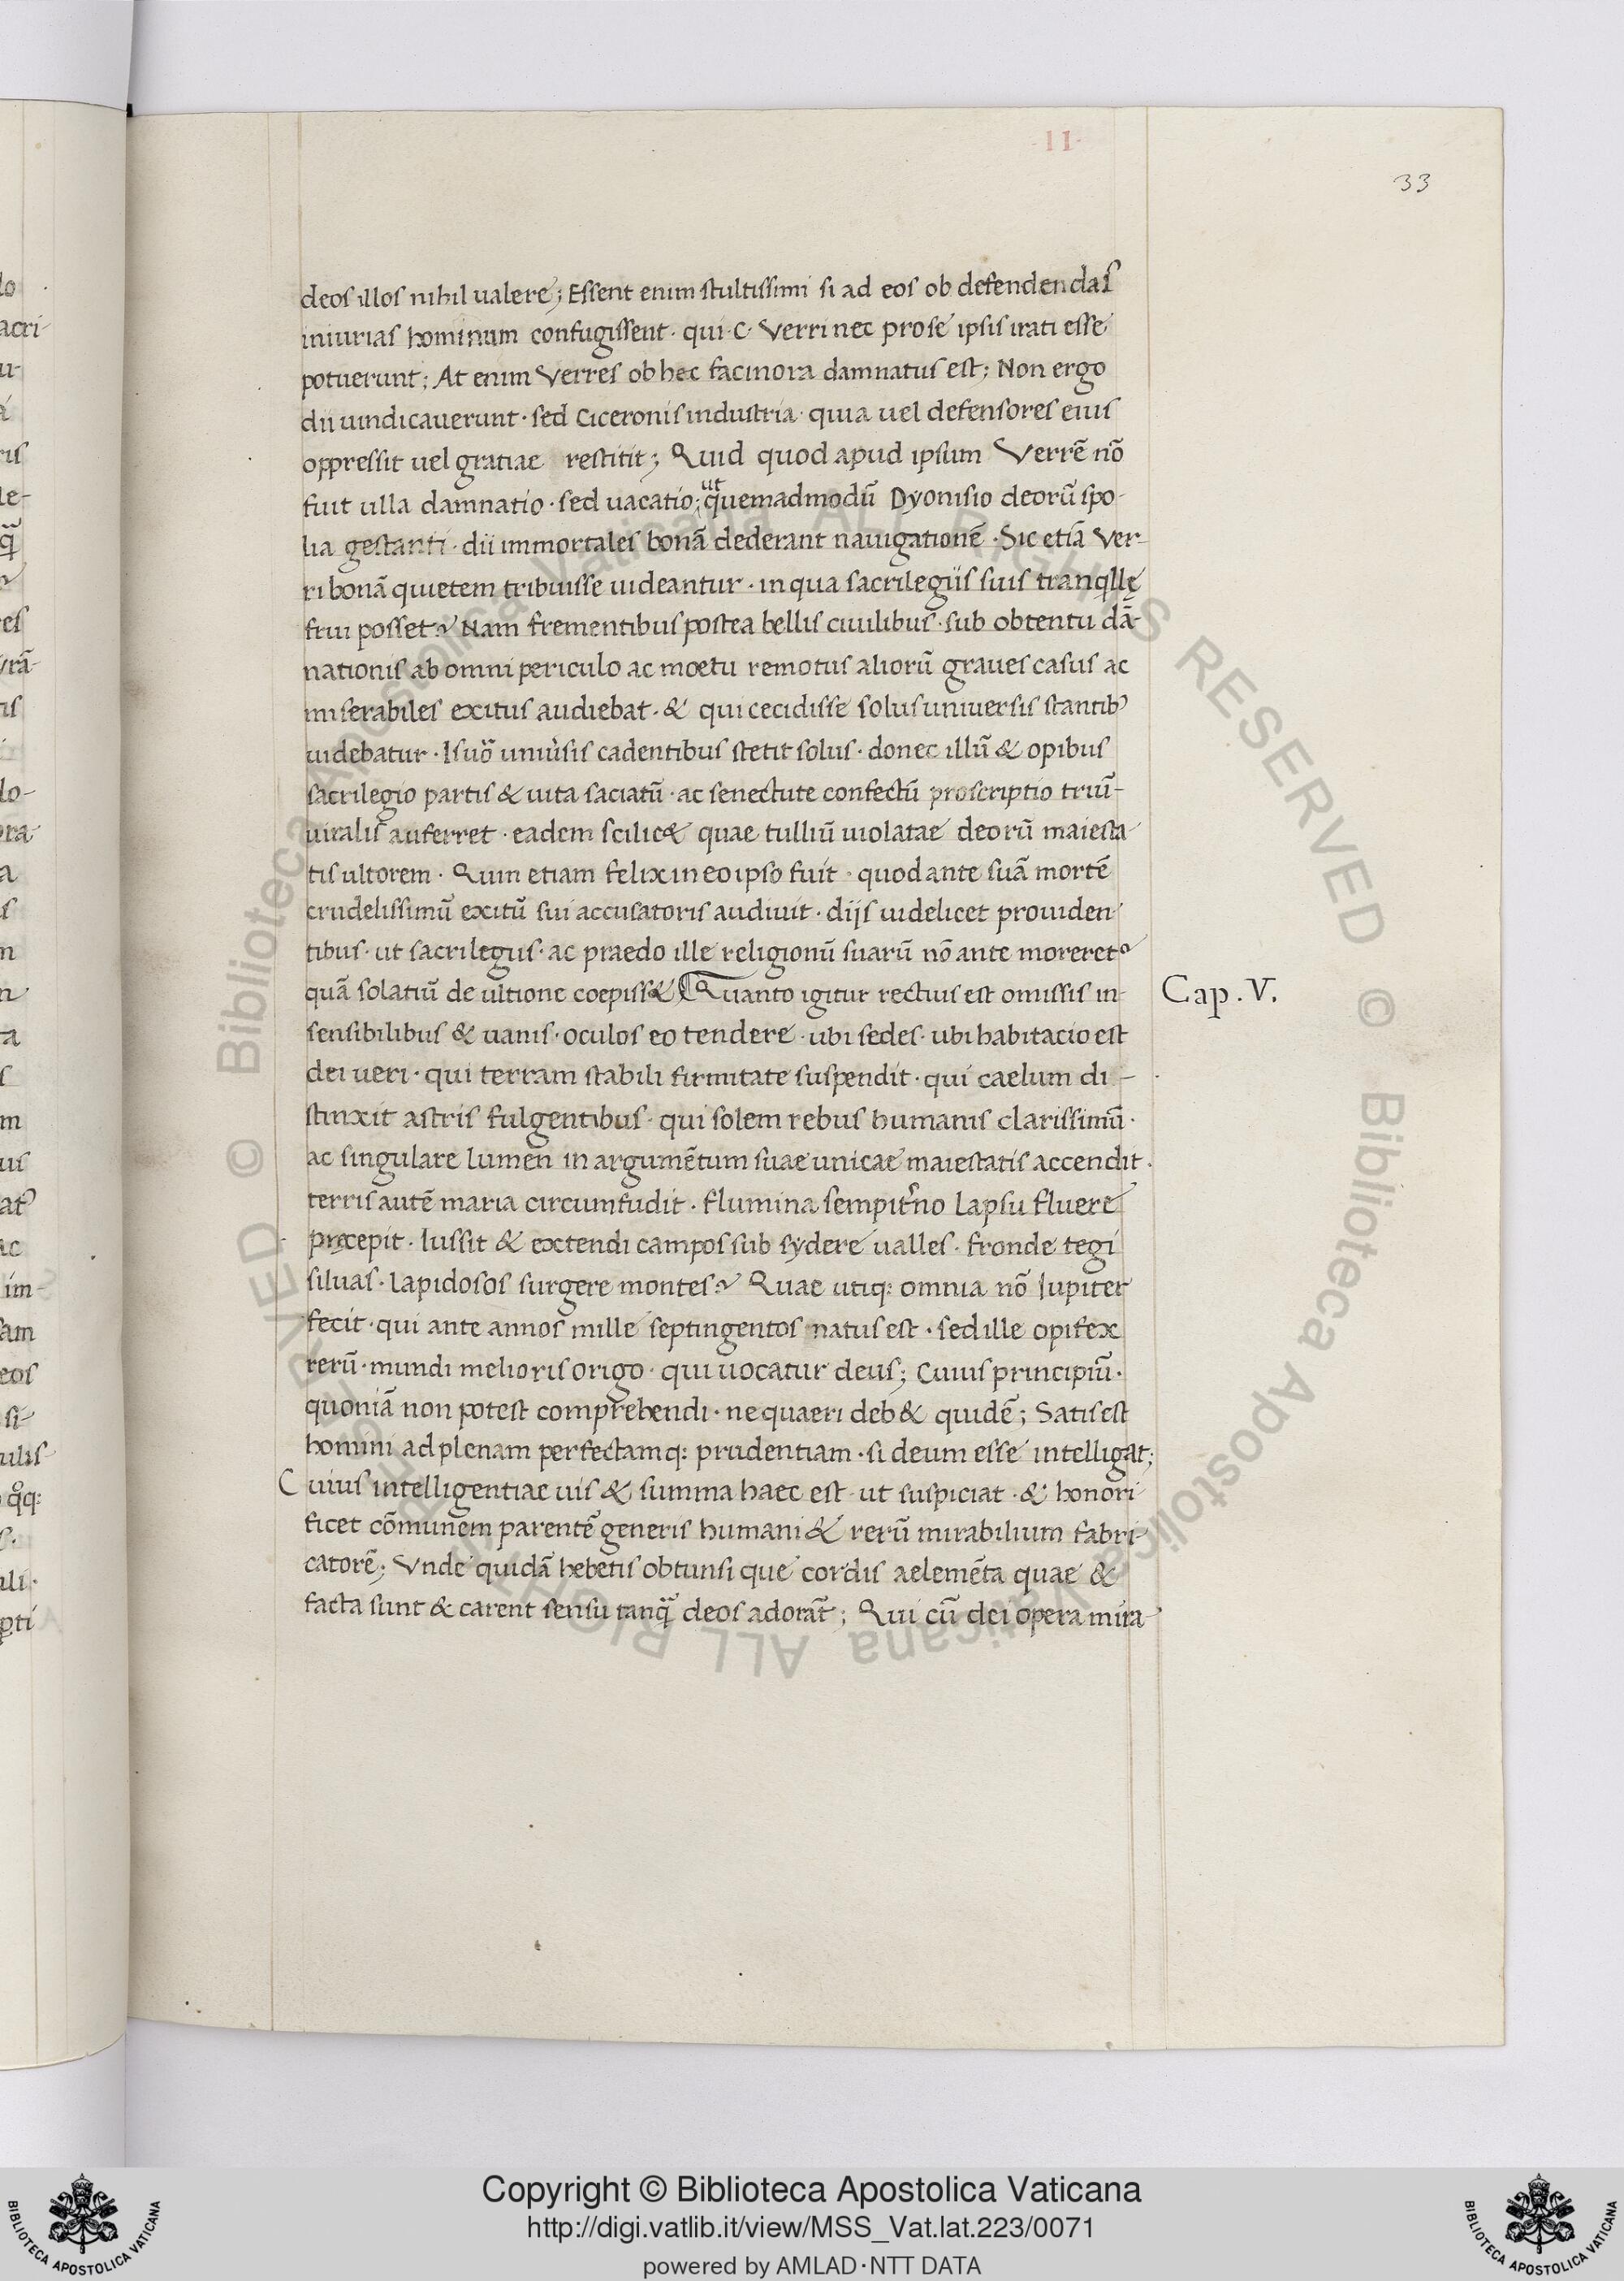 ·II·
33
deos illos nihil ualere; Essent enim stultissimi si ad eos ob defendendas
iniurias hominum confugissent · qui · C · Verri nec prose ipsis irati esse
potuerunt; At enim Verres ob hec facinora damnatus est; Non ergo
dii uindicauerunt · sed Ciceronis industria · quia uel defensores eius
oppressit uel gratiae restitit; Quid quod apud ipsum Verrē nō
fuit ulla damnatio · sed uacatio; ut quemadmodū Dyonisio deorū spo-
lia gestanti · dii immortales bonā dederant nauigationē · Sic etiā Ver-
ri bonā quietem tribuisse uideantur · in qua sacrilegiis suis tranqllę
frui posset? Nam frementibus postea bellis ciuilibus · sub obtentu dā-
nationis ab omni periculo ac moetu remotus aliorū graues casus ac
miserabiles exitus audiebat · & qui cecidisse solus uniuersis stantibꝰ
uidebatur · Is uō uniu̓sis cadentibus stetit solus · donec illū & opibus
sacrilegio partis & uita saciatū · ac senectute confectū proscriptio triū-
uiralis auferret · eadem scilic& quae tulliū uiolatae deorū maiesta-
tis ultorem · Quin etiam felix in eo ipso fuit · quod ante suā mortē
crudelissimū exitū sui accusatoris audiuit · dijs uidelicet prouiden-
tibus · ut sacrilegus · ac praedo ille religionū suarū nō ante moreretᷣ
quā solatiū de ultione coepiss& Quanto igitur rectius est omissis in-
Cap. V.
sensibilibus & uanis · oculos eo tendere · ubi sedes · ubi habitacio est
dei ueri · qui terram stabili firmitate suspendit · qui caelum di-
stinxit astris fulgentibus · qui solem rebus humanis clarissimū ·
ac singulare lumen in argumētum suae unicae maiestatis accendit ·
terris autē maria circumfudit · flumina sempit̓no lapsu fluere
præcepit · Iussit & extendi campos sub sydere ualles · fronde tegi
siluas · lapidosos surgere montes? Quae utiq: omnia nō Iupiter
fecit · qui ante annos mille septingentos natus est · sed ille opifex
rerū · mundi melioris origo · qui uocatur deus; Cuius principiū ·
quoniā non potest comprehendi · ne quaeri deb& quidē; Satis est
homini ad plenam perfectamq: prudentiam · si deum esse intelligat;
Cuius intelligentiae uis & summa haec est · ut suspiciat · & honori-
ficet cōmunem parentē generis humani & rerū mirabilium fabri-
catorē; Vnde quidā hebetis obtunsi que cordis aelemēta quae &
facta sunt & carent sensu tanq̄ deos adorāt; Qui cū dei opera mira-
Copyright © Biblioteca Apostolica Vaticana
http://digi.vatlib.it/view/MSS_Vat.lat.223/0071
powered by AMLAD·NTT DATA
BIBLIOTECA APOSTOLICA VATICANA
BIBLIOTECA APOSTOLICA VATICANA
© Biblioteca Apostolica Vaticana ALL RIGHTS RESERVED © Biblioteca Apostolica Vaticana ALL RIGHTS RESERVED